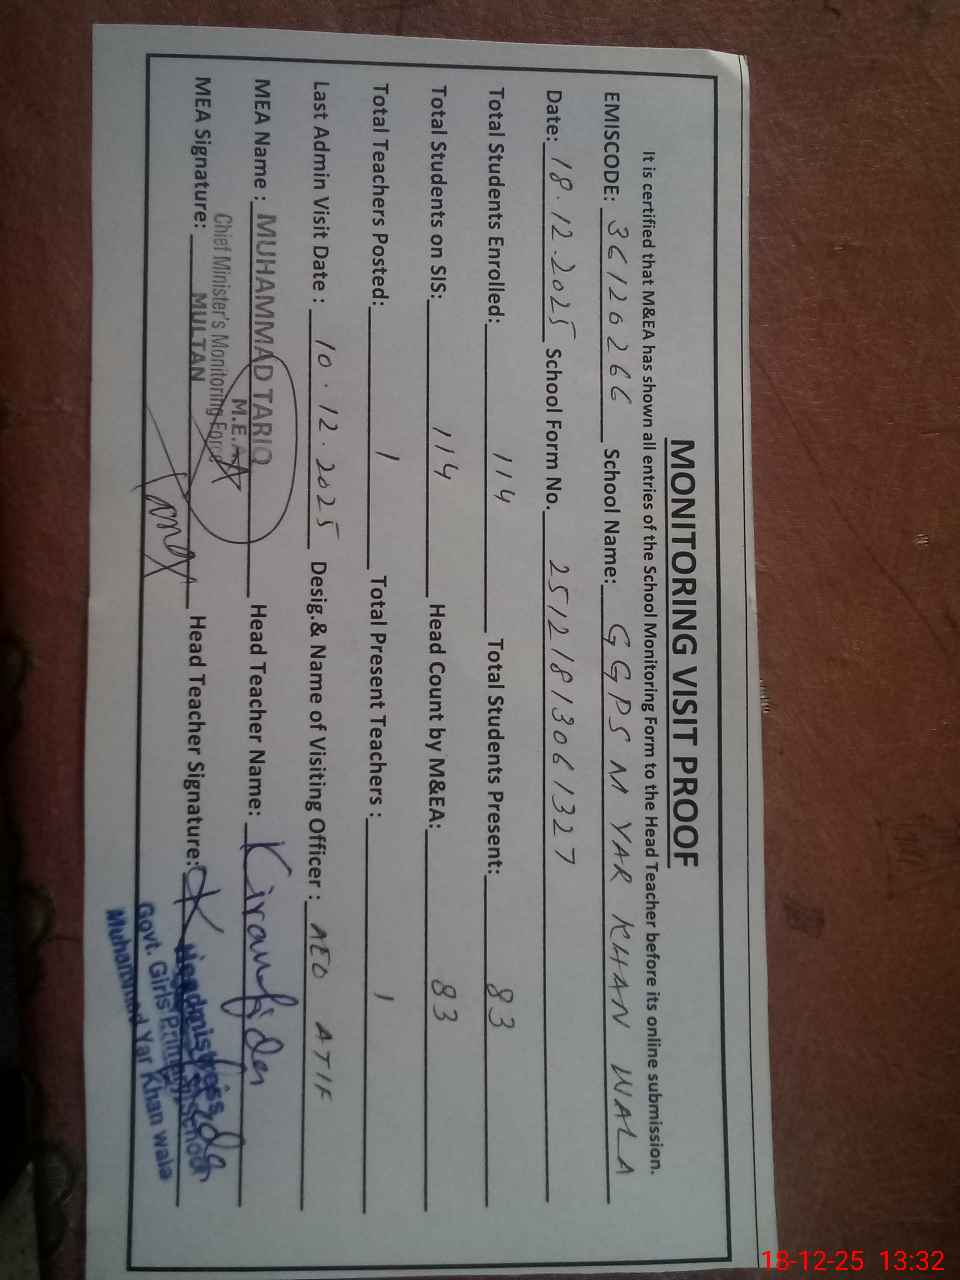 MONITORING VISIT PROOF
It is certified that M&EA has shown all entries of the School Monitoring Form to the Head Teacher before its online submission.
EMISCODE: 36126266 School Name: GGPS M YAR KHAN WALA
Date: 18.12.2025 School Form No. 25121813061327
Total Students Enrolled: 114 Total Students Present: 83
Total Students on SIS: 114 Head Count by M&EA: 83
Total Teachers Posted: 1 Total Present Teachers : 1
Last Admin Visit Date : 10.12.2025 Desig.& Name of Visiting Officer : AEO ATIF
MEA Name : MUHAMMAD TARIQ Head Teacher Name: Kiran
M.E.A
Chief Minister's Monitoring Force
MEA Signature: MULTAN Head Teacher Signature:
Headmistress
Govt. Girls Primary School
Muhammad Yar Khan wala
18-12-25 13:32